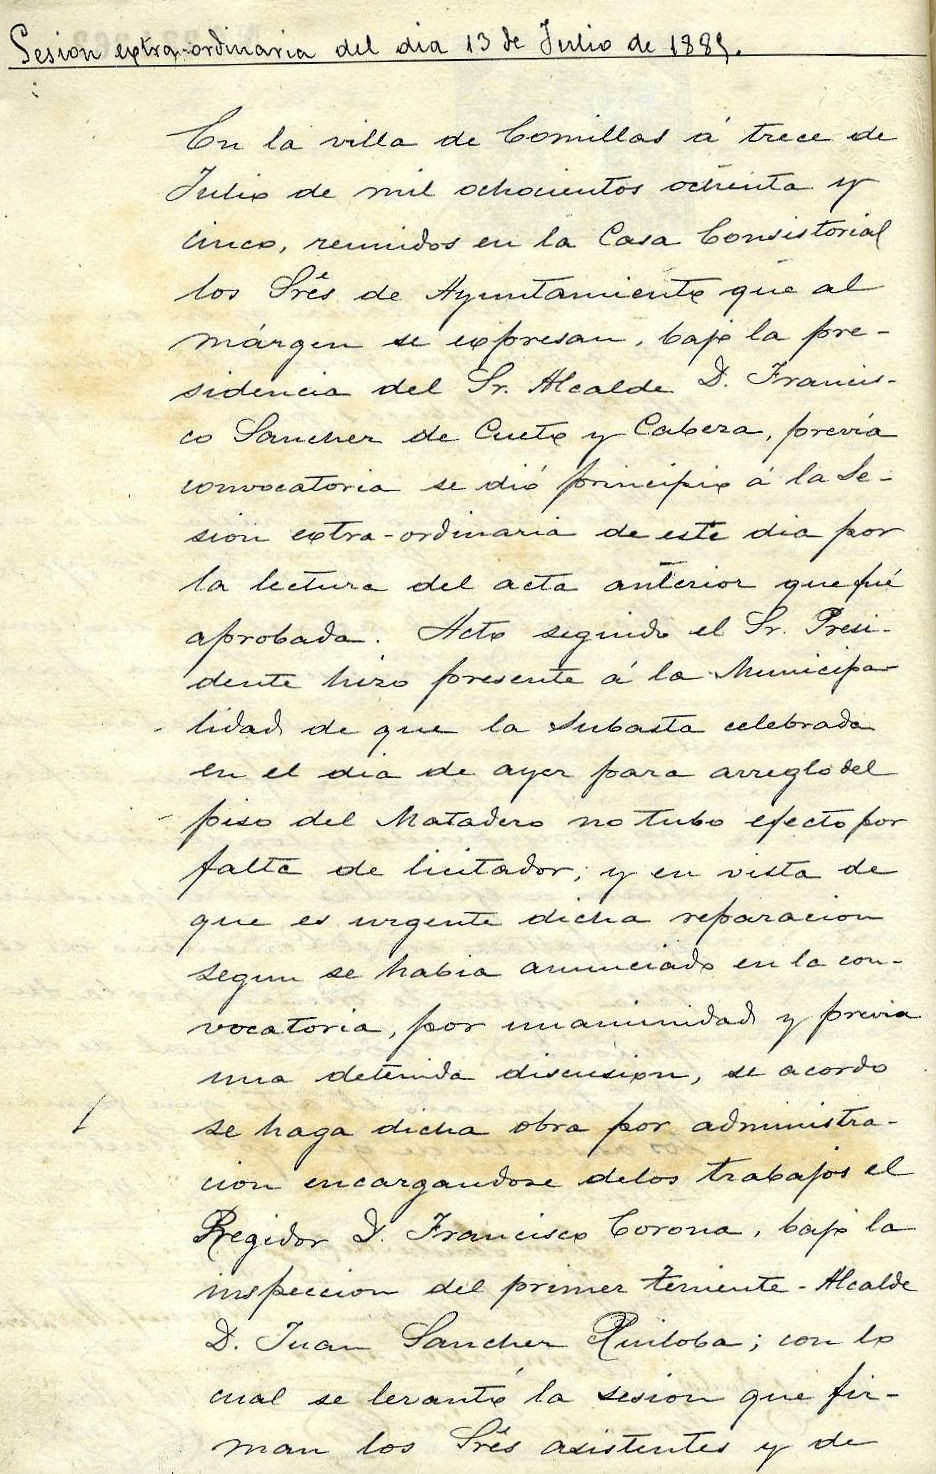 Sesion extra-ordinaria del dia 13 de Julio de 1885.
En la villa de Comillas á trece de
Julio de mil ochocientos ochenta y
cinco, reunidos en la Casa Consistorial
los Srēs de Ayuntamiento que al
márgen se expresan, bajo la pre-
sidencia del Sr. Alcalde D. Francis-
co Sanchez de Cueto y Cabeza, prévia
convocatoria se dió principio á la Se-
sion extra-ordinaria de este dia por
la lectura del acta anterior que fué
aprobada. Acto seguido el Sr. Presi-
dente hizo presente á la Municipa-
lidad de que la Subasta celebrada
en el dia de ayer para arreglo del
piso del Matadero no tubo efecto por
falta de licitador; y en vista de
que es urgente dicha reparacion
segun se habia anunciado en la con-
vocatoria, por unanimidad y prévia
una detenida discusion, se acordo
se haga dicha obra por administra-
cion encargandose delos trabajos el
Regidor D. Francisco Corona, bajo la
inspeccion del primer teniente-Alcalde
D. Juan Sanchez Ruiloba; con lo
cual se levantó la sesion que fir-
man los Srēs asistentes y de